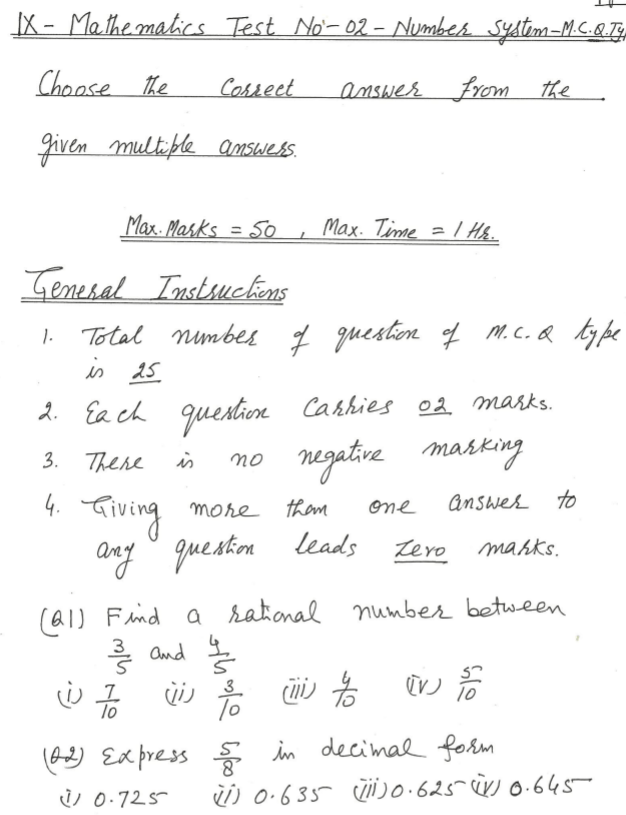 IX - Mathematics Test No - 02 - Number System - M.C.Q. Ty
Choose the Correct answer from the
given multiple answers.
Max. Marks = 50 , Max. Time = 1 Hr.
General Instructions
1. Total number of question of M.C.Q type
is 25
2. Each question Carries 02 marks.
3. There is no negative marking
4. Giving more than one answer to
any question leads Zero marks.
(Q1) Find a rational number between
3/5 and 4/5
(i) 7/10 (ii) 3/10 (iii) 4/10 (iv) 5/10
(Q2) Express 5/8 in decimal form
(i) 0.725 (ii) 0.635 (iii) 0.625 (iv) 0.645